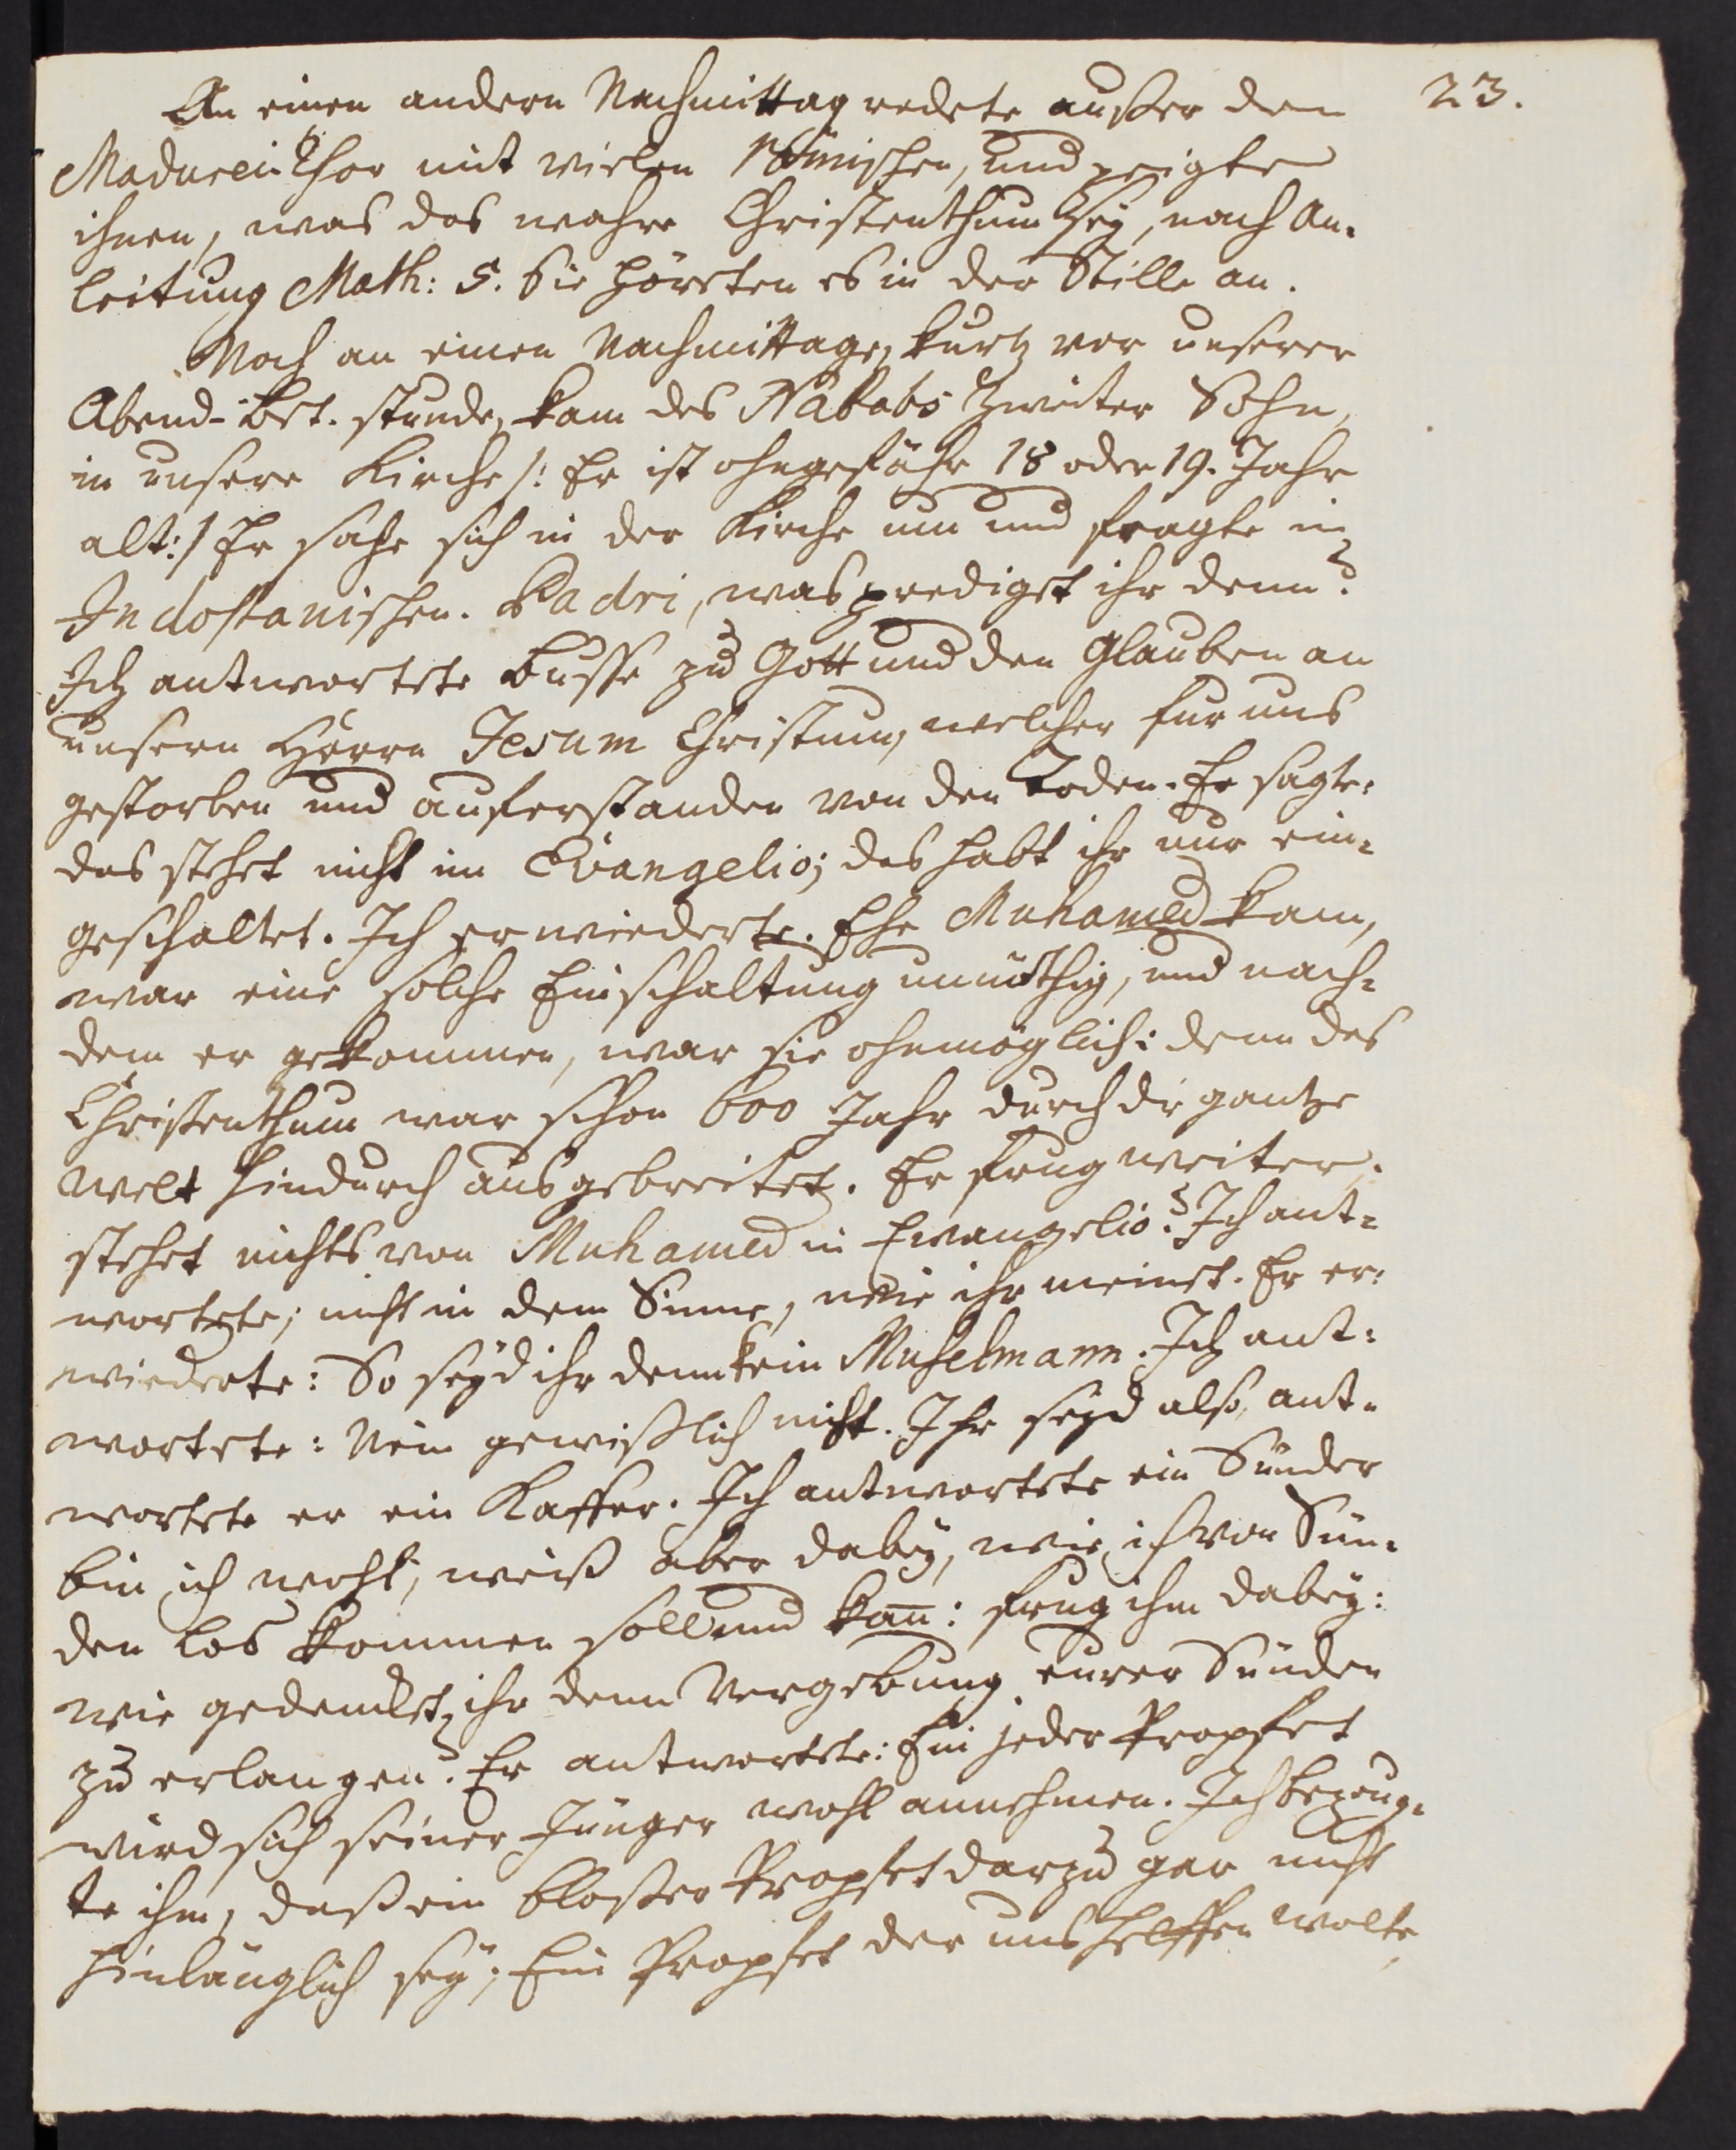 23.
An einen andern Nachmittag redete außer dem
Madurei-Thor mit vielen Römischen, und zeigte
ihnen, was das wahre Christenthum sey, nach An-
leitung Math: 5. Sie höreten es in der Stille an.
Noch an einen Nachmittage, kurtz vor unserer
Abend-Bet-stunde, kam des Nababs Zweiter Sohn,
in unsere Kirche /: Er ist ohngefähr 18 oder 19. Jahr
alt:/ Er sahe sich in der Kirche um und fragte in
Indostanischen. Padri, was prediget ihr denn?
Ich antwortete Busse zu Gott und den Glauben an
unsern Herrn Jesum Christum, welcher fur uns
gestorben und auferstanden von den Toden. Er sagte:
das stehet nicht im Evangelio; das habt ihr nur ein-
geschaltet. Ich erwiederte. Ehe Muhamed kam,
war eine solche Einschaltung unnöthig, und nach-
dem er gekommen, war sie ohnmöglich: denn das
Christenthum war schon 600 Jahr durch die gantze
Welt hindurch ausgebreitet. Er frug weiter,
stehet nichts von Muhamed in Evangelio? Ich ant-
wortete; nicht in dem Sinne, wie ihr meinet. Er er-
wiederte: So seyd ihr denn kein Muselmann. Ich ant-
wortete: Nein gewißlich nicht. Ihr seyd also, ant-
wortete er ein Kaffer. Ich antwortete ein Sünder
bin ich wohl, weiß aber dabey, wie ich von Sün-
den los kommen soll und kan: frug ihm dabey:
wie gedencket ihr denn Vergebung eurer Sünden
zu erlangen? Er antwortete: Ein jeder Prophet
wird sich seiner Jünger wohl annehmen. Ich bezeug-
te ihm, daß ein bloßer Prophet darzu gar nicht
hinlänglich sey; Ein Prophet der uns helffen wolte,